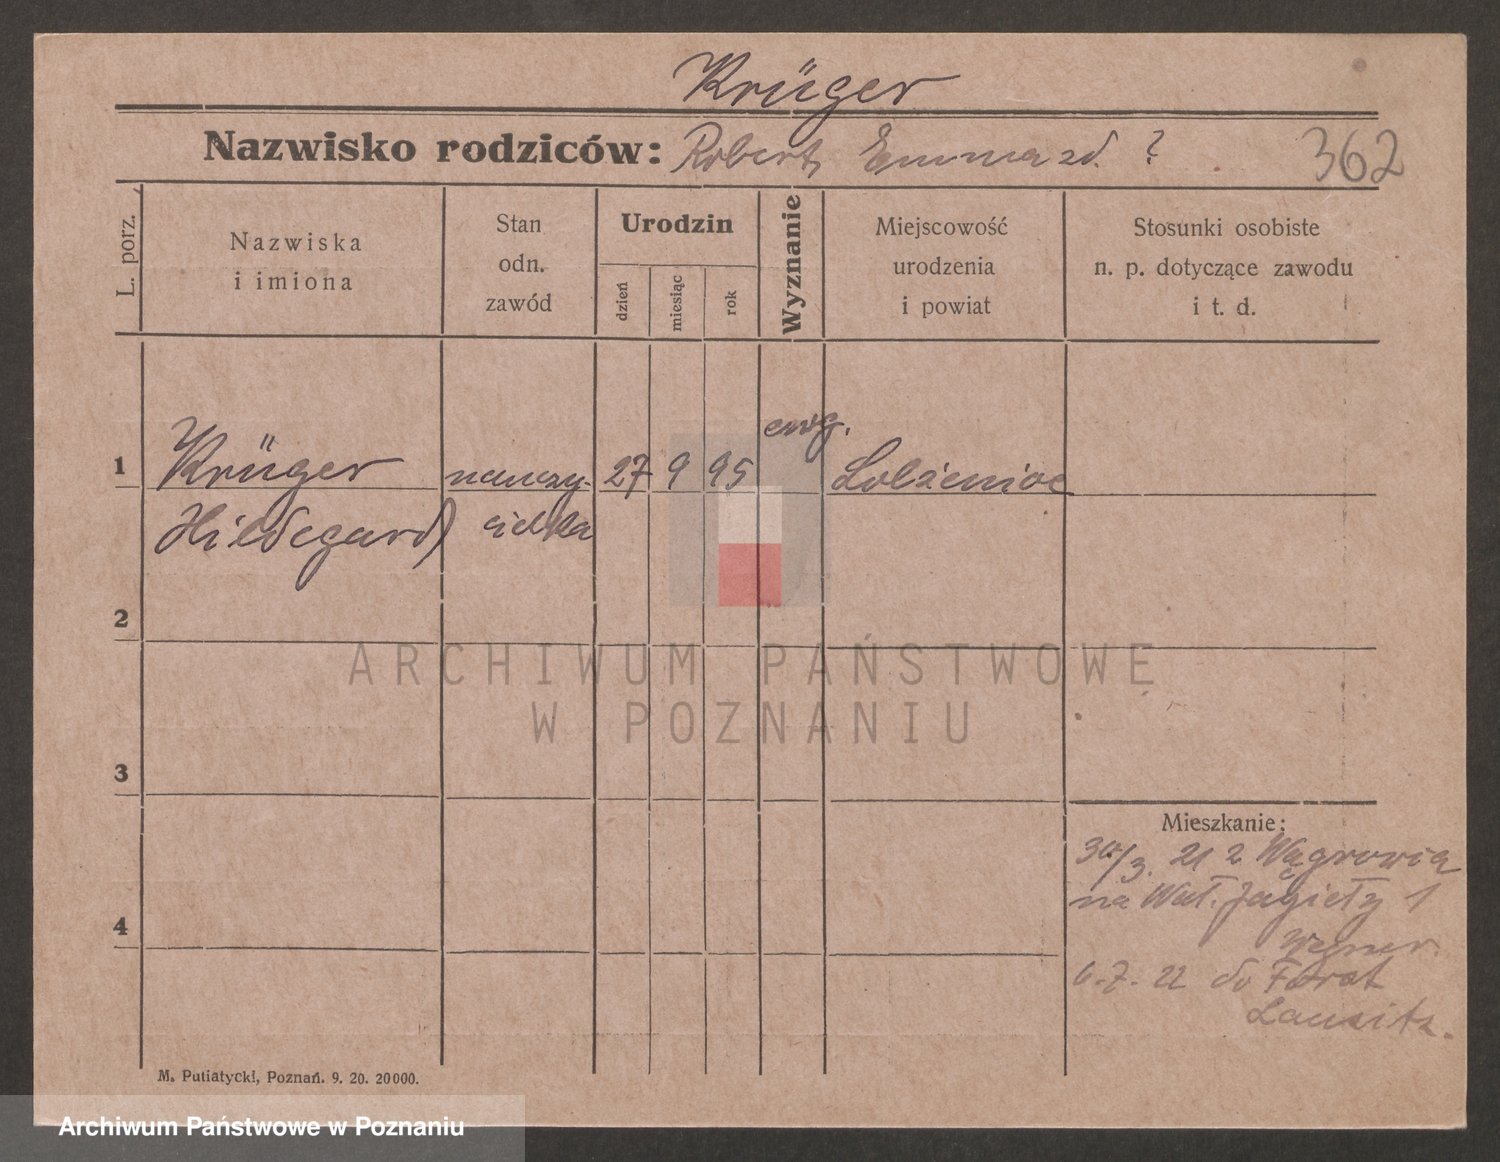 Krüger
Nazwisko rodziców: Robert, Emma zd. ?
362
L. porz.
Nazwiska
i imiona
Stan
odn.
zawód
Urodzin
dzień
miesiąc
rok
Wyznanie
Miejscowość
urodzenia
i powiat
Stosunki osobiste
n. p. dotyczące zawodu
i t. d.
1
Krüger
Hildegard
nauczy-
cielka
27 9 95
ewg.
Lobżenica
2
3
4
Mieszkanie:
30/3. 21 z Wągrowca
na Wał. Jagiełły 1
6.7.22 do Forst
Lausitz.
M. Putiatycki, Poznań. 9. 20. 20000.
ARCHIWUM PAŃSTWOWE
W POZNANIU
Archiwum Państwowe w Poznaniu